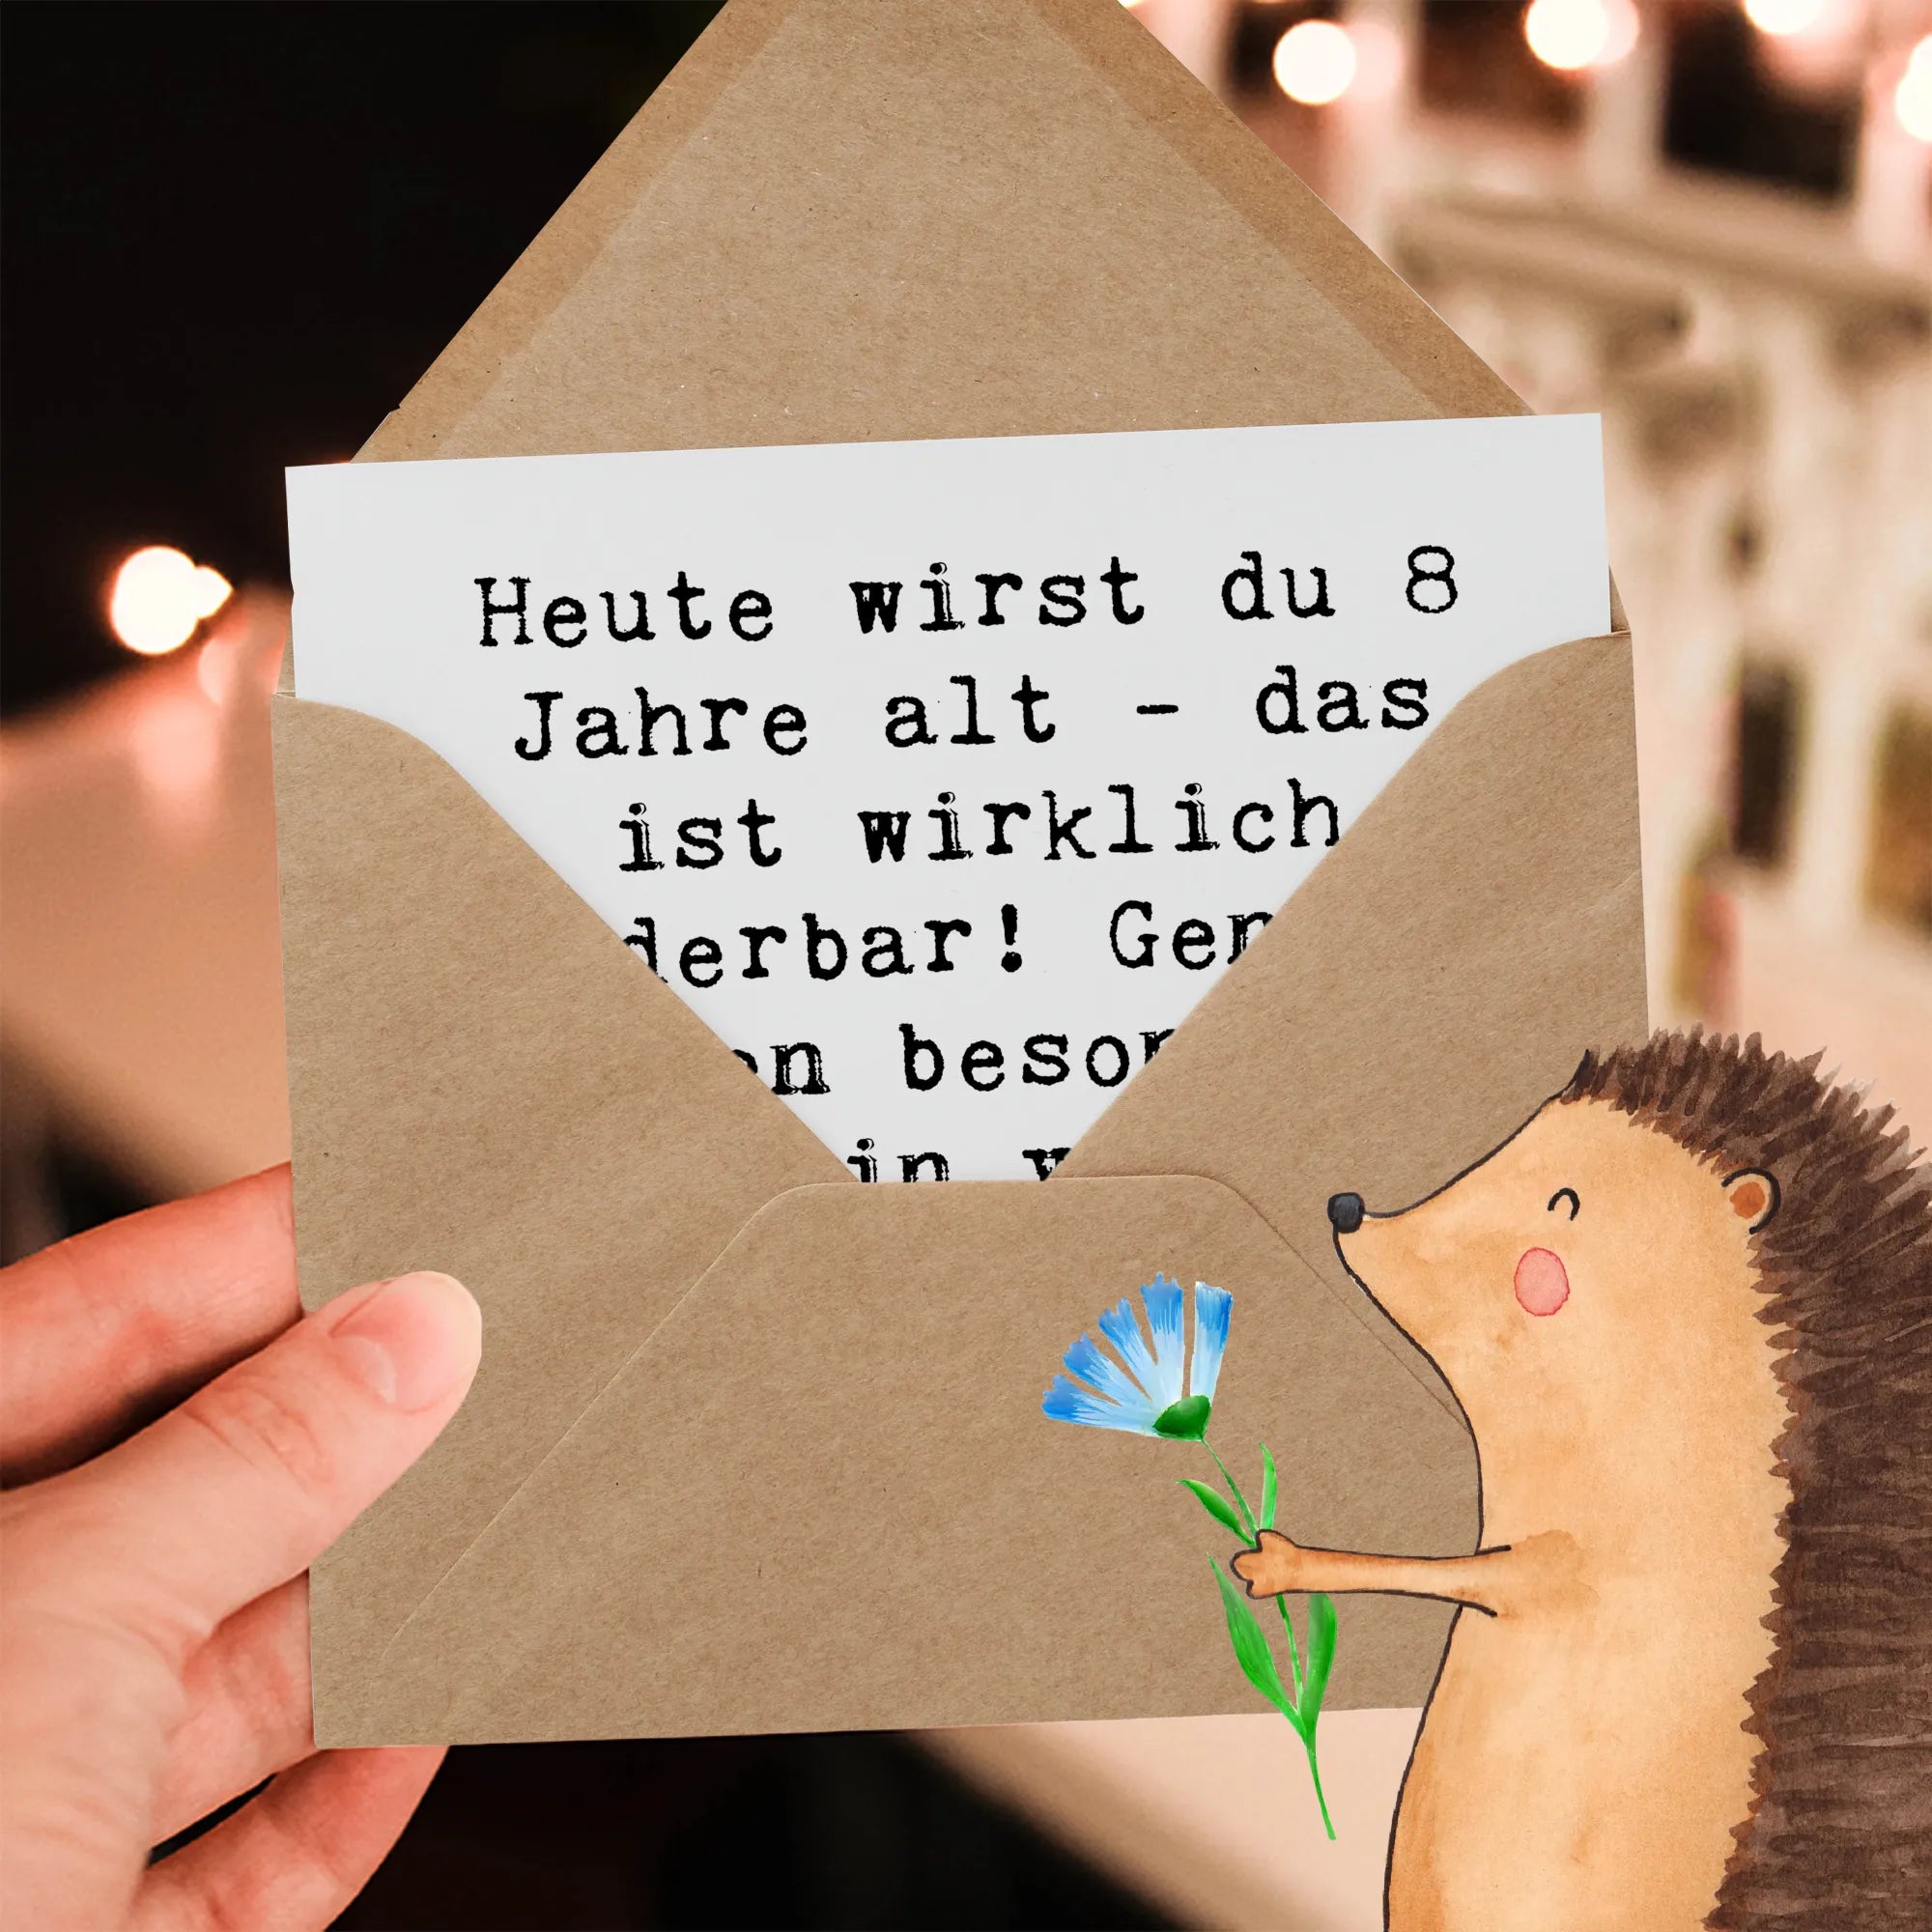 Heute wirst du 8
Jahre alt - das
ist wirklich
derbar! Gen
en beson
in w